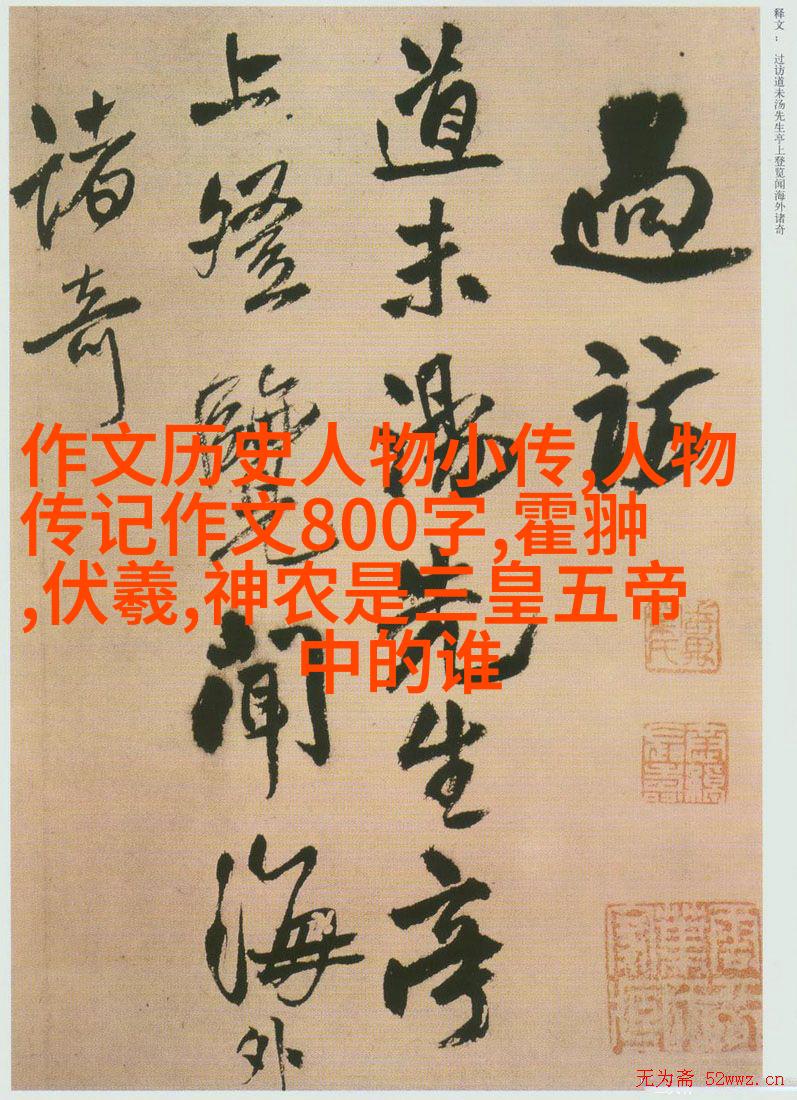 释文： 过访道未汤先生亭上登览闻海外诸奇
過訪
道未湯先生亭
上登覽聞海外
諸奇
作文历史人物小传,人物
传记作文800字,霍翀
,伏羲,神农是三皇五帝
中的谁
无为斋 52wwz.cn